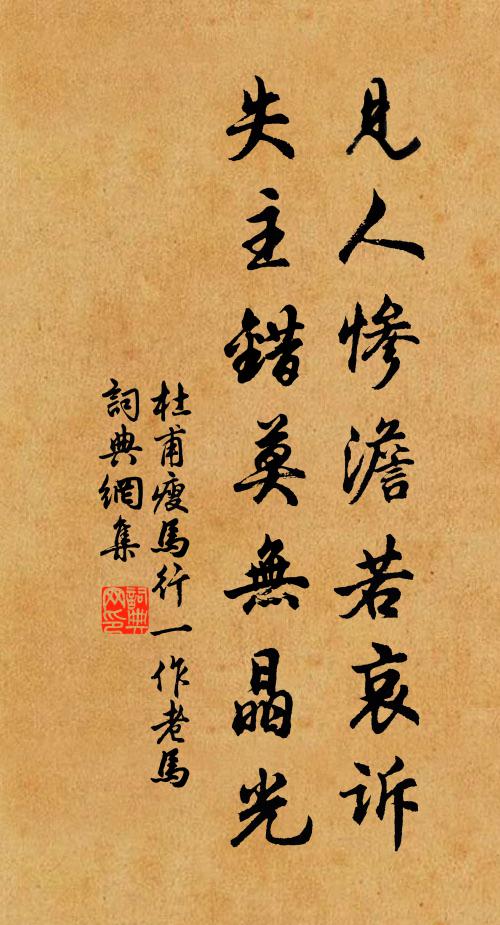 見人慘澹若哀訴
失主錯莫無晶光
杜甫瘦馬行一作老馬
詞典網集
詞典网印